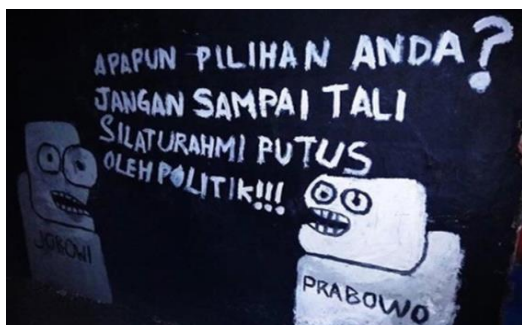 APAPUN PILIHAN ANDA?
JANGAN SAMPAI TALI
SILATURAHMI PUTUS
OLEH POLITIK!!!
JOKOWI
PRABOWO